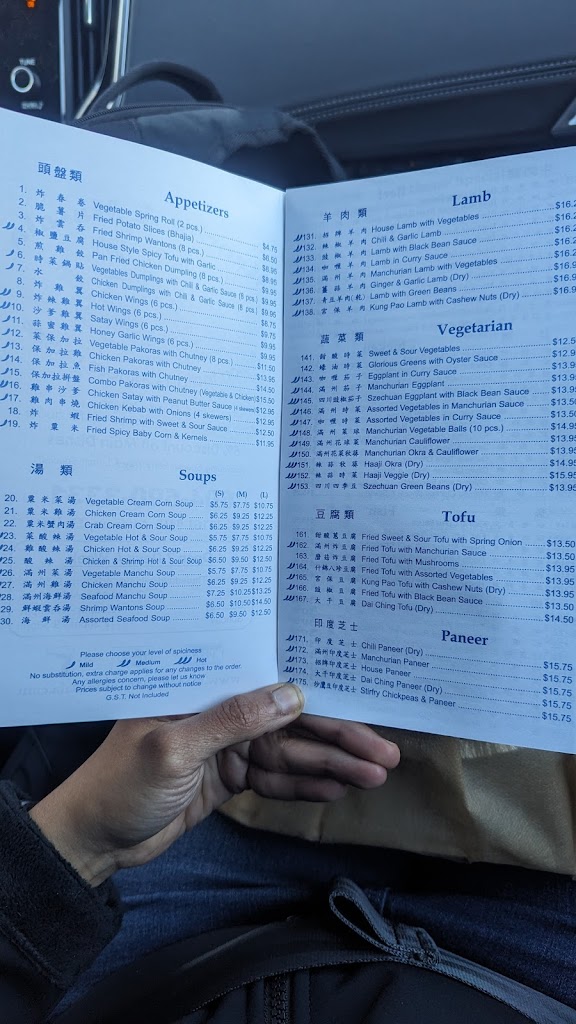 頭盤類 Appetizers
1. 炸春卷 Vegetable Spring Roll (2 pcs.) $4.75
2. 脆薯片 Fried Potato Slices (Bhajia) $6.50
3. 炸雲吞 Fried Shrimp Wantons (8 pcs.) $8.95
4. 椒鹽豆腐 House Style Spicy Tofu with Garlic
5. 煎雞餃 Pan Fried Chicken Dumpling (8 pcs.)
6. 時菜鍋貼 Vegetables Dumplings with Chili & Garlic Sauce (8 pcs.)
7. 水餃 Chicken Dumplings with Chili & Garlic Sauce (8 pcs.)
8. 炸雞翼 Chicken Wings (6 pcs.)
9. 炸辣雞翼 Hot Wings (6 pcs.)
10. 沙爹雞翼 Satay Wings (6 pcs.)
11. 蒜蜜雞翼 Honey Garlic Wings (6 pcs.)
12. 菜保加拉 Vegetable Pakoras with Chutney (8 pcs.)
13. 保加拉雞 Chicken Pakoras with Chutney
14. 保加拉魚 Fish Pakoras with Chutney
15. 保加拉拼盤 Combo Pakoras with Chutney (Vegetable & Chicken)
16. 雞串沙爹 Chicken Satay with Peanut Butter Sauce (4 skewers) $12.95
17. 雞肉串燒 Chicken Kebab with Onions (4 skewers) $12.95
18. 炸蝦 Fried Shrimp with Sweet & Sour Sauce $12.50
19. 炸粟米 Fried Spicy Baby Corn & Kernels $11.95
湯類 Soups
(S) (M) (L)
20. 粟米菜湯 Vegetable Cream Corn Soup $5.75 $7.75 $10.75
21. 粟米雞湯 Chicken Cream Corn Soup $6.25 $9.25 $12.25
22. 粟米蟹肉湯 Crab Cream Corn Soup $6.25 $9.25 $12.25
23. 菜酸辣湯 Vegetable Hot & Sour Soup $5.75 $7.75 $10.75
24. 雞酸辣湯 Chicken Hot & Sour Soup $6.25 $9.25 $12.25
25. 酸辣湯 Chicken & Shrimp Hot & Sour Soup $6.50 $9.50 $12.50
26. 滿州菜湯 Vegetable Manchu Soup $5.75 $7.75 $10.75
27. 滿州雞湯 Chicken Manchu Soup $6.25 $9.25 $12.25
28. 滿州海鮮湯 Seafood Manchu Soup $7.25 $10.25 $13.25
29. 鮮蝦雲吞湯 Shrimp Wantons Soup $6.50 $10.50 $14.50
30. 海鮮湯 Assorted Seafood Soup $6.50 $9.50 $12.50
Please choose your level of spiciness
Mild Medium Hot
No substitution, extra charge applies for any changes to the order.
Any allergies concern, please let us know
Prices subject to change without notice
G.S.T. Not Included
羊肉類 Lamb
131. 招牌羊肉 House Lamb with Vegetables
132. 辣椒羊肉 Chili & Garlic Lamb
133. 豉椒羊肉 Lamb with Black Bean Sauce
134. 咖喱羊肉 Lamb in Curry Sauce
135. 滿州羊肉 Manchurian Lamb with Vegetables
136. 薑蒜羊肉 Ginger & Garlic Lamb (Dry)
137. 青豆羊肉(乾) Lamb with Green Beans
138. 宮保羊肉 Kung Pao Lamb with Cashew Nuts (Dry)
蔬菜類 Vegetarian
141. 甜酸時菜 Sweet & Sour Vegetables
142. 蠔油時菜 Glorious Greens with Oyster Sauce
143. 咖喱茄子 Eggplant in Curry Sauce
144. 滿州茄子 Manchurian Eggplant
145. 四川豉椒茄子 Szechuan Eggplant with Black Bean Sauce
146. 滿州時菜 Assorted Vegetables in Manchurian Sauce
147. 咖喱時菜 Assorted Vegetables in Curry Sauce
148. 滿州菜球 Manchurian Vegetable Balls (10 pcs.)
149. 滿州花球菜 Manchurian Cauliflower
150. 滿州花菜秋葵 Manchurian Okra & Cauliflower
151. 辣蒜秋葵 Haaji Okra (Dry)
152. 辣蒜時菜 Haaji Veggie (Dry)
153. 四川四季豆 Szechuan Green Beans (Dry)
豆腐類 Tofu
161. 甜酸蔥豆腐 Fried Sweet & Sour Tofu with Spring Onion $13.50
162. 滿州炸豆腐 Fried Tofu with Manchurian Sauce
163. 蘑菇炸豆腐 Fried Tofu with Mushrooms
164. 什錦八珍豆腐 Fried Tofu with Assorted Vegetables
165. 宮保豆腐 Kung Pao Tofu with Cashew Nuts (Dry)
166. 豉椒豆腐 Fried Tofu with Black Bean Sauce
167. 大千豆腐 Dai Ching Tofu (Dry) $14.50
印度芝士 Paneer
171. 印度芝士 Chili Paneer (Dry) $15.75
172. 滿州印度芝士 Manchurian Paneer $15.75
173. 招牌印度芝士 House Paneer $15.75
174. 大千印度芝士 Dai Ching Paneer (Dry) $15.75
175. 炒鷹豆印度芝士 Stirfry Chickpeas & Paneer $15.75